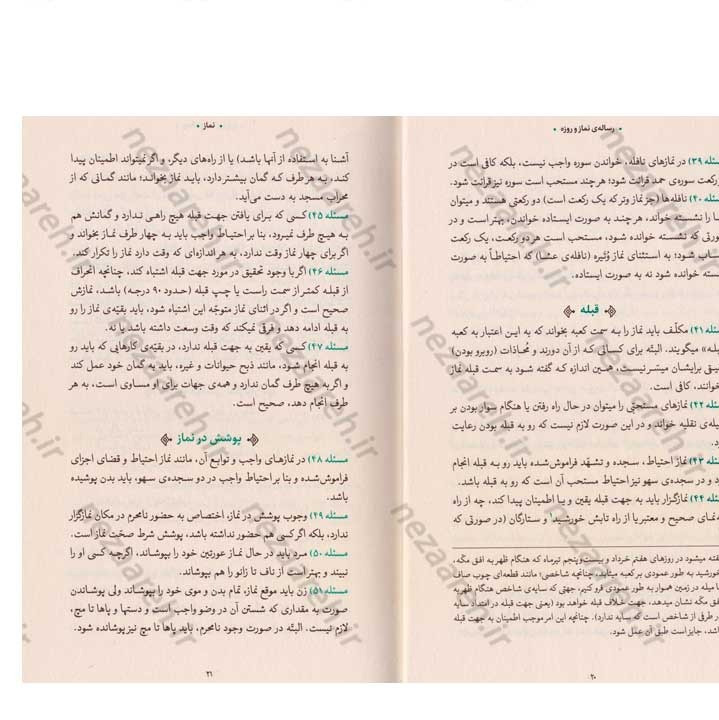 • رساله‌ی نماز و روزه •
مسئله ۳۹) در نمازهای نافله، خواندن سوره واجب نیست، بلکه کافی است در
رکعت سوره‌ی حمد قرائت شود؛ هر چند مستحب است سوره نیز قرائت شود.
مسئله ۴۰) نافله‌ها (جز نماز وتر که یک رکعت است) دو رکعتی هستند و میتوان
را نشسته خواند، هر چند به صورت ایستاده خواندن، بهتر است و در
صورتی که نشسته خوانده شود، مستحب است هر دو رکعت، یک رکعت
حساب شود؛ به استثنای نماز وُتَیره (نافله‌ی عشا) که احتیاطاً به صورت
نشسته خوانده شود نه به صورت ایستاده.
قبله
مسئله ۴۱) مکلّف باید نماز را به سمت کعبه بخواند که به این اعتبار به کعبه
«قبله» میگویند. البتّه برای کسانی که از آن دورند و مُحاذات (روبرو بودن)
برایشان میسّر نیست، همین اندازه که گفته شود به سمت قبله نماز
میخوانند، کافی است.
مسئله ۴۲) نمازهای مستحبّی را میتوان در حال راه رفتن یا هنگام سوار بودن بر
وسیله‌ی نقلیه خواند و در این صورت لازم نیست که رو به قبله بودن رعایت
مسئله ۴۳) نماز احتیاط، سجده و تشهّد فراموش‌شده باید رو به قبله انجام
و در سجده‌ی سهو نیز احتیاط مستحب آن است که رو به قبله باشد.
مسئله ۴۴) نمازگزار باید به جهت قبله یقین و یا اطمینان پیدا کند، چه از راه
قبله‌نمای صحیح و معتبر یا از راه تابش خورشید۱ و ستارگان (در صورتی که
گفته میشود در روزهای هفتم خرداد و بیست‌و‌پنجم تیرماه که هنگام ظهر به افق مکّه،
خورشید به طور عمودی بر کعبه میتابد، چنانچه شاخصی؛ مانند قطعه‌ای چوب صاف
یا میله در زمین هموار به طور عمودی فرو کنیم، جهتی که سایه‌ی شاخص هنگام ظهر به
افق مکّه نشان میدهد، جهت خلاف قبله خواهد بود (یعنی جهت قبله در امتداد سایه
در طرفی از شاخص است که سایه ندارد). چنانچه این امر موجب اطمینان به جهت قبله
باشد، جایز است طبق آن عمل شود.
۲۰
• نماز •
آشنا به استفاده از آنها باشد) یا از راه‌های دیگر، و اگر نمیتواند اطمینان پیدا
کند، به هر طرف که گمان بیشتر دارد، باید نماز بخواند؛ مانند گمانی که از
محراب مسجد به دست می‌آید.
مسئله ۴۵) کسی که برای یافتن جهت قبله هیچ راهی ندارد و گمانش هم
به هیچ طرف نمیرود، بنا بر احتیاط واجب باید به چهار طرف نماز بخواند و
اگر برای چهار نماز وقت ندارد، به هر اندازه‌ای که وقت دارد نماز را تکرار کند.
مسئله ۴۶) اگر با وجود تحقیق در مورد جهت قبله اشتباه کند، چنانچه انحراف
از قبله کمتر از سمت راست یا چپ قبله (حدود ۹۰ درجه) باشد، نمازش
صحیح است و اگر در اثنای نماز متوجّه این اشتباه شود، باید بقیّه‌ی نماز را رو
به قبله ادامه دهد و فرقی نمیکند که وقت وسعت داشته باشد یا نه.
مسئله ۴۷) کسی که یقین به جهت قبله ندارد، در بقیّه‌ی کارهایی که باید رو
به قبله انجام شود، مانند ذبح حیوانات و غیره، باید به گمان خود عمل کند
و اگر به هیچ طرف گمان ندارد و همه‌ی جهات برای او مساوی است، به هر
طرف انجام دهد، صحیح است.
پوشش در نماز
مسئله ۴۸) در نمازهای واجب و توابع آن، مانند نماز احتیاط و قضای اجزای
فراموش‌شده و بنا بر احتیاط واجب در دو سجده‌ی سهو، باید بدن پوشیده
باشد.
مسئله ۴۹) وجوب پوشش در نماز، اختصاص به حضور نامحرم در مکان نمازگزار
ندارد، بلکه اگر کسی هم حضور نداشته باشد، پوشش شرط صحّت نماز است.
مسئله ۵۰) مرد باید در حال نماز عورتین خود را بپوشاند، اگرچه کسی او را
نبیند و بهتر است از ناف تا زانو را هم بپوشاند.
مسئله ۵۱) زن باید موقع نماز، تمام بدن و موی خود را بپوشاند ولی پوشاندن
صورت به مقداری که شستن آن در وضو واجب است و دستها و پاها تا مچ،
لازم نیست. البتّه در صورت وجود نامحرم، باید پاها تا مچ نیز پوشانده شود.
۲۱
nezaareh.ir